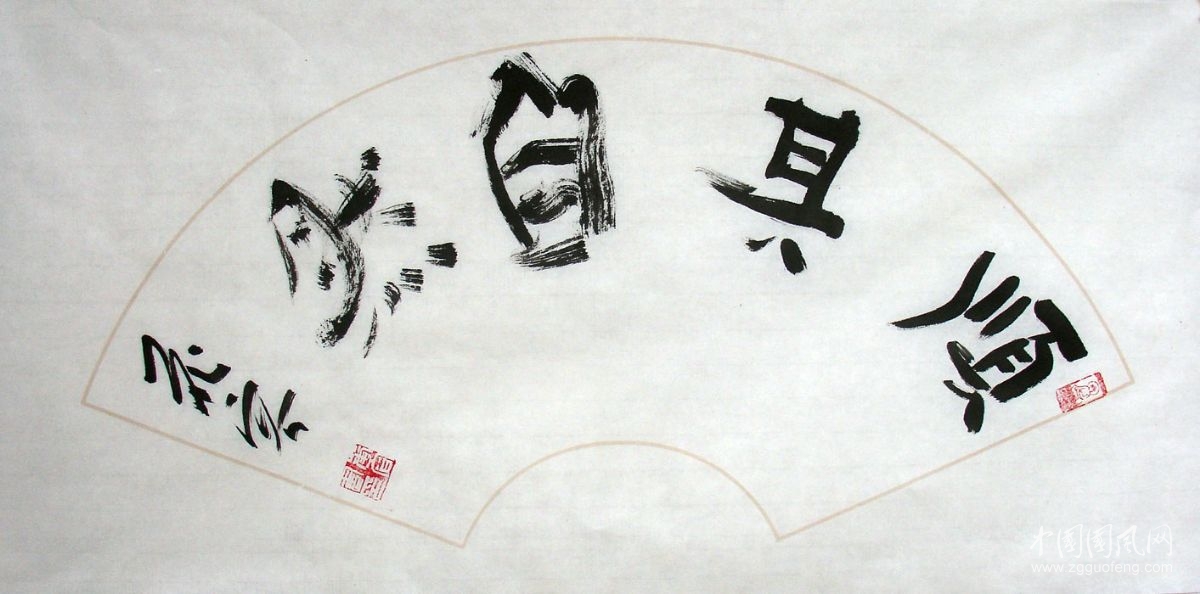 順其自然
中国国风网
www.zgguofeng.com